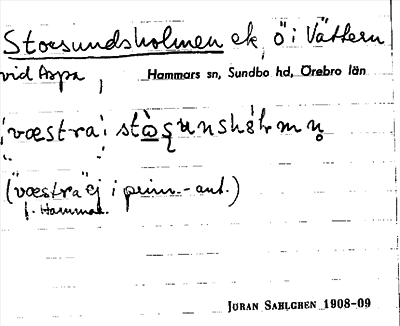 Storsundsholmen ek, ö i Vättern
vid Aspa, Hammars sn, Sundbo hd, Örebro län
("væstra" ej i prim.-ant.)
f. Hammar.
JÖRAN SAHLGREN 1908-09